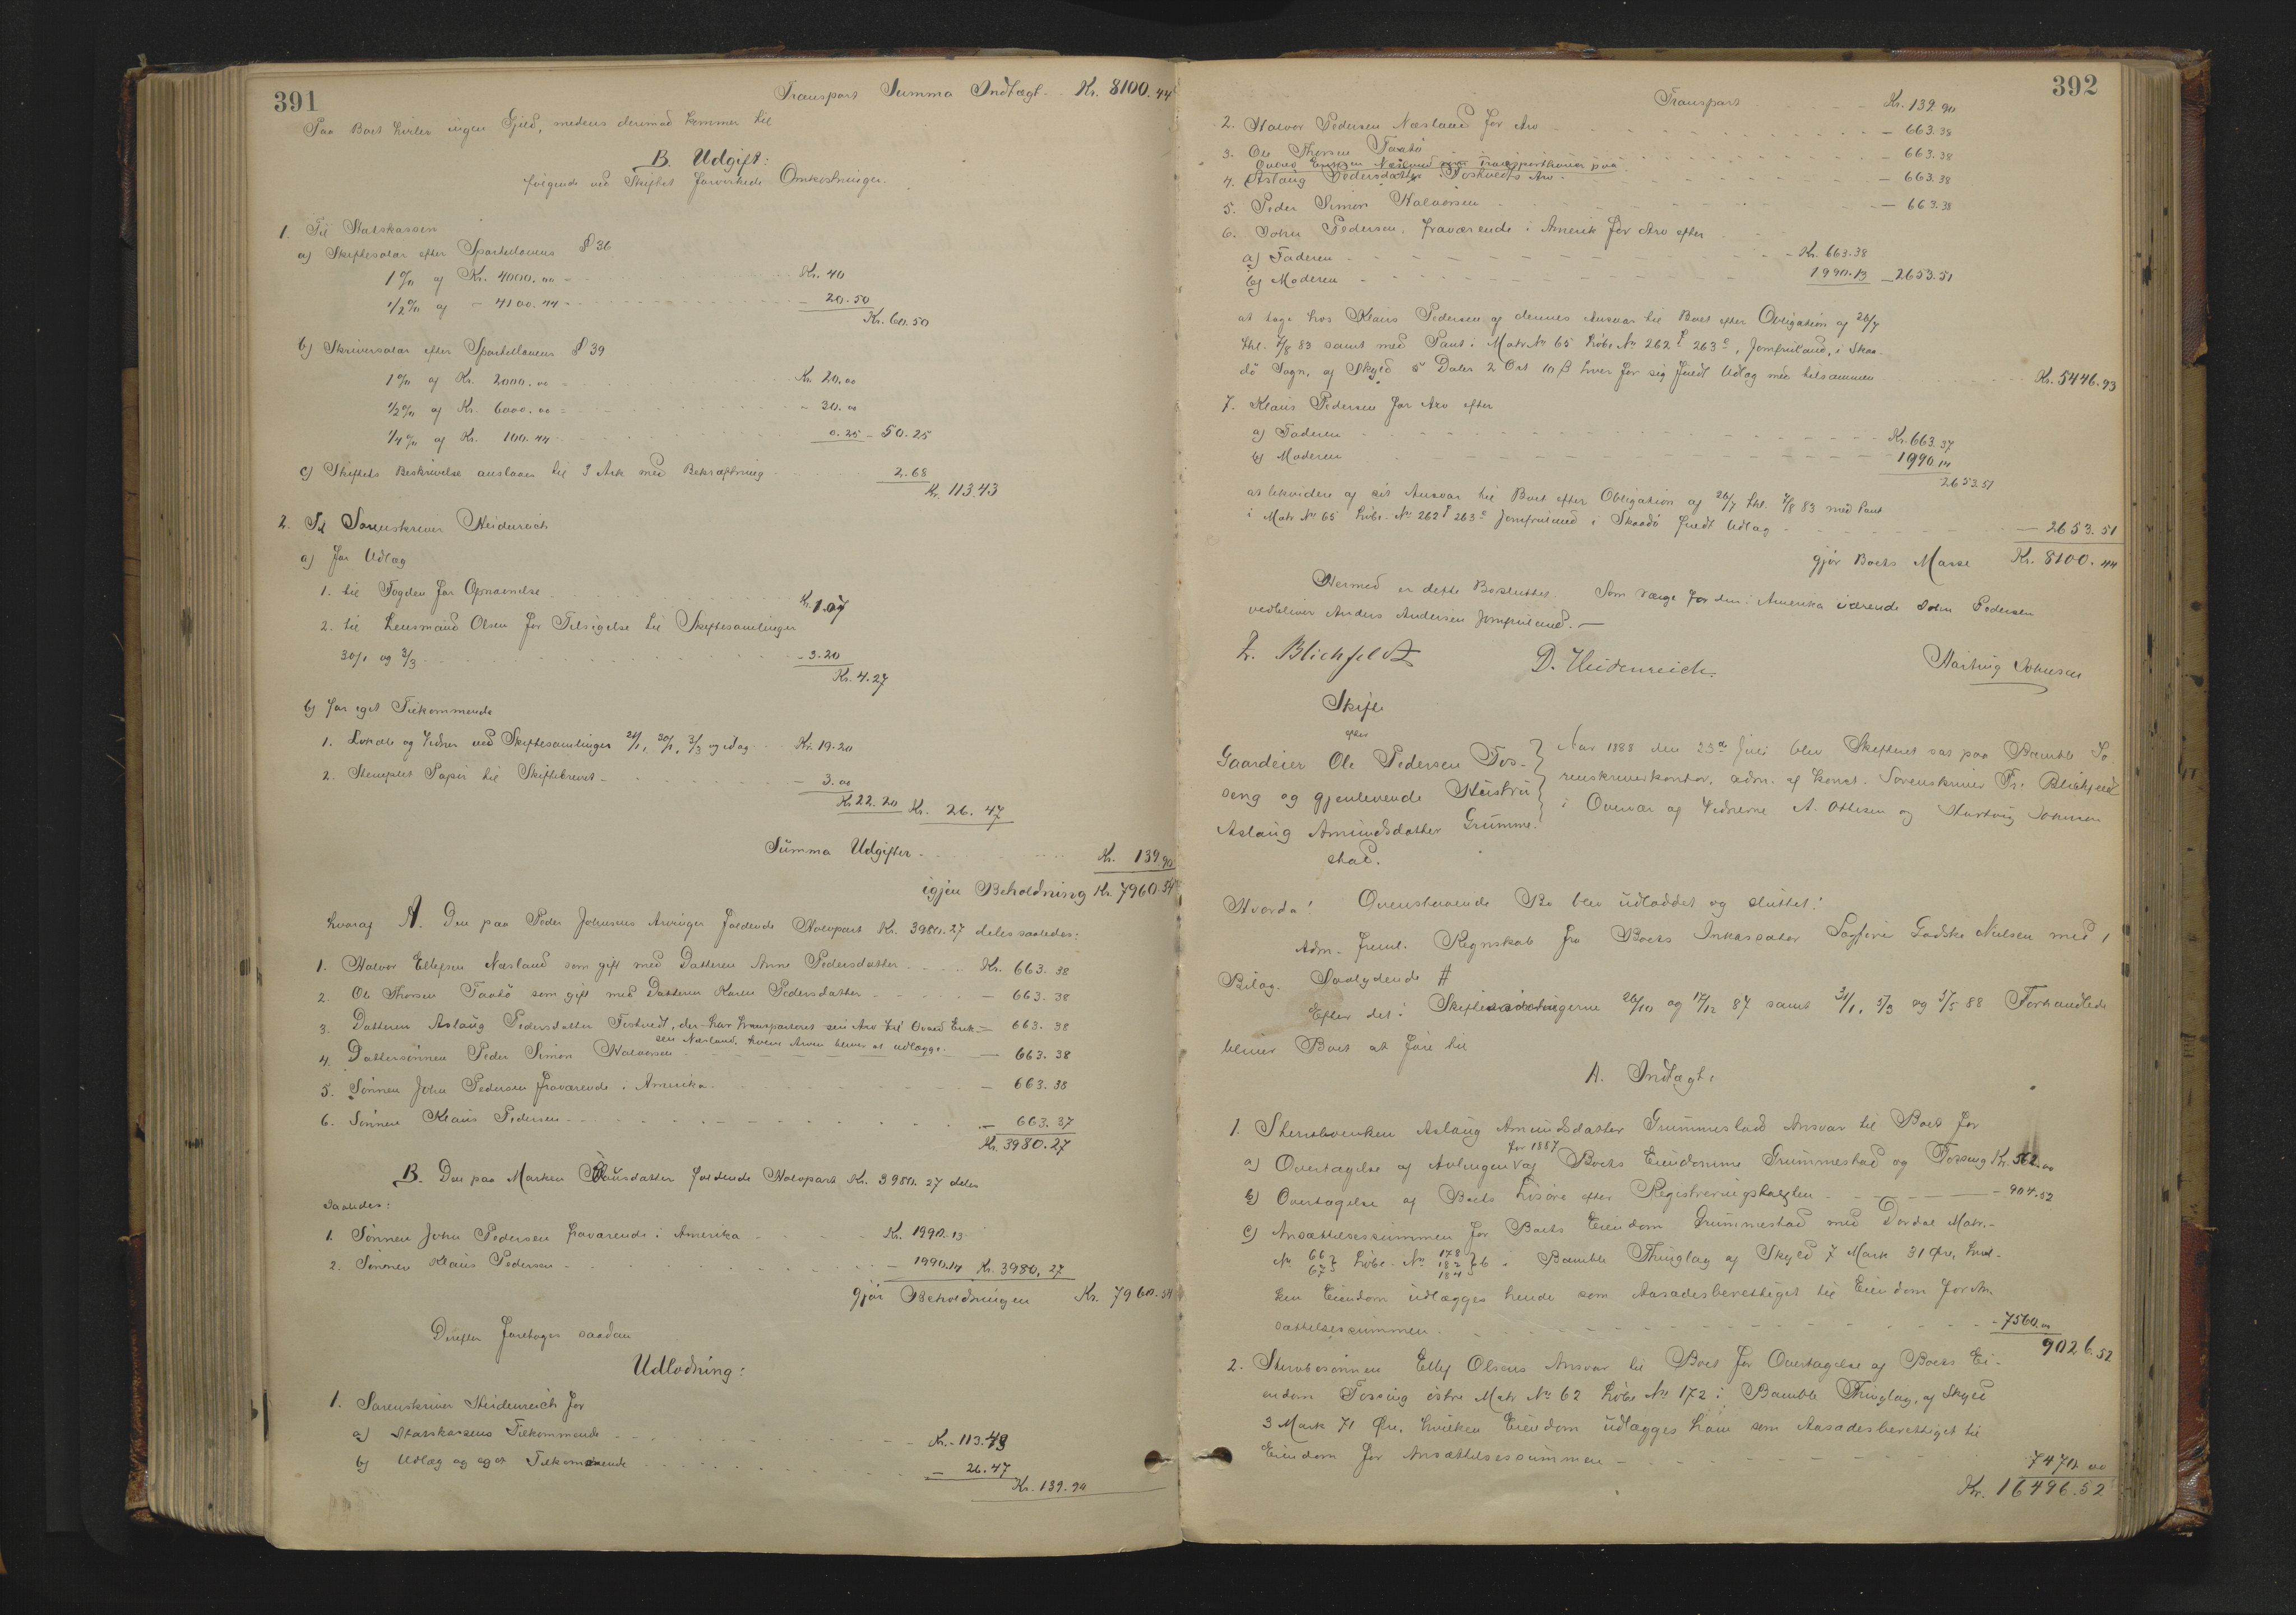 391
Transport Summa Indtægt - Kr. 8100.44
Paa Boet hviler ingen Gjeld, medens derimod kommer til
B. Udgift:
følgende ved Skiftet forvirkede Omkostninger.
1. Til Statskassen
a) Skiftesalær efter Sportellovens § 36
1 % af Kr. 4000.00 - Kr. 40
1/2 % af - 4100.44 - - 20.50
Kr. 60.50
b) Skriversalær efter Sportellovens § 39
1 % af Kr. 2000.00 = Kr. 20.00
1/2 % af Kr. 6000.00 = - 30.00
1/4 % af Kr. 100.44 - 0.25 - 50.25
c) Skiftets Beskrivelse anslaaes til 3 Ark med Bekræftning - 2.68
Kr. 113.43
2. Til Sorenskriver Heidenreich
a) for Udlæg
1. til Fogden for Opnævnelse Kr. 1.07
2. til Lensmand Olsen for Tilsigelse til Skiftesamlinger
30/1 og 3/3 - 3.20
Kr. 4.27
b) for eget Tilkommende
1. Lokale og Vidner ved Skiftesamlinger 21/1, 30/1, 3/3 og idag - Kr. 19.20
2. Stemplet Papir til Skiftebrevet - - 3.00
Kr 22.20 Kr. 26.47
Summa Udgifter - Kr. 139.90
igjen Beholdning Kr. 7960.54
hvoraf A. Den paa Peder Johnsens Arvinger faldende Halvpart Kr. 3980.27 deles saaledes:
1. Halvor Ellefsen Næsland som gift med Datteren Anne Pedersdatter - Kr. 663.38
2. Ole Thorsen Taatø som gift med Datteren Karen Pedersdatter - - 663.38
3. Datteren Aslaug Pedersdatter Fostvedt, der har transporteret sin Arv til Ovaed Erik- - 663.38
sen Næsland, hvem Arven bliver at udlægge.
4. Dattersønnen Peder Simon Halvorsen - 663.38
5. Sønnen John Pedersen fraværende i Amerika - 663.38
6. Sønnen Klaus Pedersen - - 663.37
Kr. 3980.27
B. Den paa Marken Klausdatter faldende Halvpart Kr. 3980.27 deles
saaledes:
1. Sønnen John Pedersen fraværende i Amerika - Kr. 1990.13
2. Sønnen Klaus Pedersen - - 1990.14 Kr. 3980.27
gjør Beholdningen Kr. 7960.54
Derefter foretoges saadan
Udlodning:
1. Sorenskriver Heidenreich for
a) Statskassens Tilkommende - Kr. 113.43
b) Udlæg og eget Tilkommende - 26.47
Kr. 139.90
392
Transport - Kr. 139.90
2. Halvor Pedersen Næsland for Arv - 663.38
3. Ole Thorsen Taatø - 663.38
Transporthaver paa
4. Aslaug Pedersdatter Fostvedts Arv - 663.38
5. Peder Simon Halvorsen - 663.38
6. John Pedersen, fraværende i Amerik for Arv efter
a) Faderen - Kr. 663.38
b) Moderen - 1990.13 - 2653.51
at tage hos Klaus Pedersen af dennes Ansvar til Boet efter Obligation af 26/7
thl. 7/8 83 samt med Pant i Matr No 65 Løbe No 262 & 263 c, Jomfruland, i Skaa-
dø Sogn, af Skyld 5 Daler 2 Ort 10 β hver for sig fuldt Udlæg med tilsammen
Kr. 5446.93
7. Klaus Pedersen for Arv efter
a) Faderen - Kr. 663.37
b) Moderen - 1990.14
2653.51
at likvidere af sit Ansvar til Boet efter Obligation af 26/7 thl. 7/8 83 med Pant
i Matr No 65 Løbe-No 262 & 263 c Jomfruland i Skaadø fuldt Udlæg - - 2653.51
gjør Boets Masse Kr. 8100.44
Hermed er dette Bo sluttet. Som Værge for den i Amerika værende John Pedersen
vedbliver Anders Andersen Jomfruland. -
Fr. Blichfeldt D. Heidenreich. Hartvig Johnsen
Skifte
efter
Gaardeier Ole Pedersen Fos-
seng og gjenlevende Hustru
Aslaug Amundsdatter Grumme-
stad.
Aar 1888 den 23de Juli blev Skifteret sat paa Bamble So-
renskriverkontor, adm. af konst. Sorenskriver Fr. Blichfeldt
i Overvær af Vidnerne A. Ottesen og Hartvig Johnsen
Hvorda: Ovenstaaende Bo blev udloddet og sluttet:
Adm. freml. Regnskab fra Boets Inkassator Sagfører Gadske Nielsen med 1
Bilag. Saalydende #
Efter det i Skiftesamlingerne 26/10 og 17/12 87 samt 31/1, 5/3 og 5/5 88 Forhandlede
bliver Boet at føre til
A. Indtægt:
1. Stervboenken Aslaug Amundsdatter Grummestad Ansvar til Boet for
for 1887
a) Overtagelse af Avlingen af Boets Eiendomme Grummestad og Fosseng Kr. 562.00
b) Overtagelse af Boets Løsøre efter Registreringstaxten - - 904.52
c) Ansættelsessummen for Boets Eiendom Grummestad med Dordal Matr.-
No 66 67 } Løbe-No 178 182 184 } b i Bamble Thinglag af Skyld 7 Mark 31 Øre, hvil-
ken Eiendom udlægges hende som Aasædesberettiget til Eiendom for An-
sættelsessummen - - 7560.00
9026.52
2. Stervbosønnen Ellef Olsens Ansvar til Boet for Overtagelse af Boets Ei-
endom Fosseng østre Matr No 62 Løbe No 172 i Bamble Thinglag, af Skyld
3 Mark 71 Øre, hvilken Eiendom udlægges ham som Aasædesberettiget til
Eiendom for Ansættelsessummen - 7470.00
Kr. 16496.52